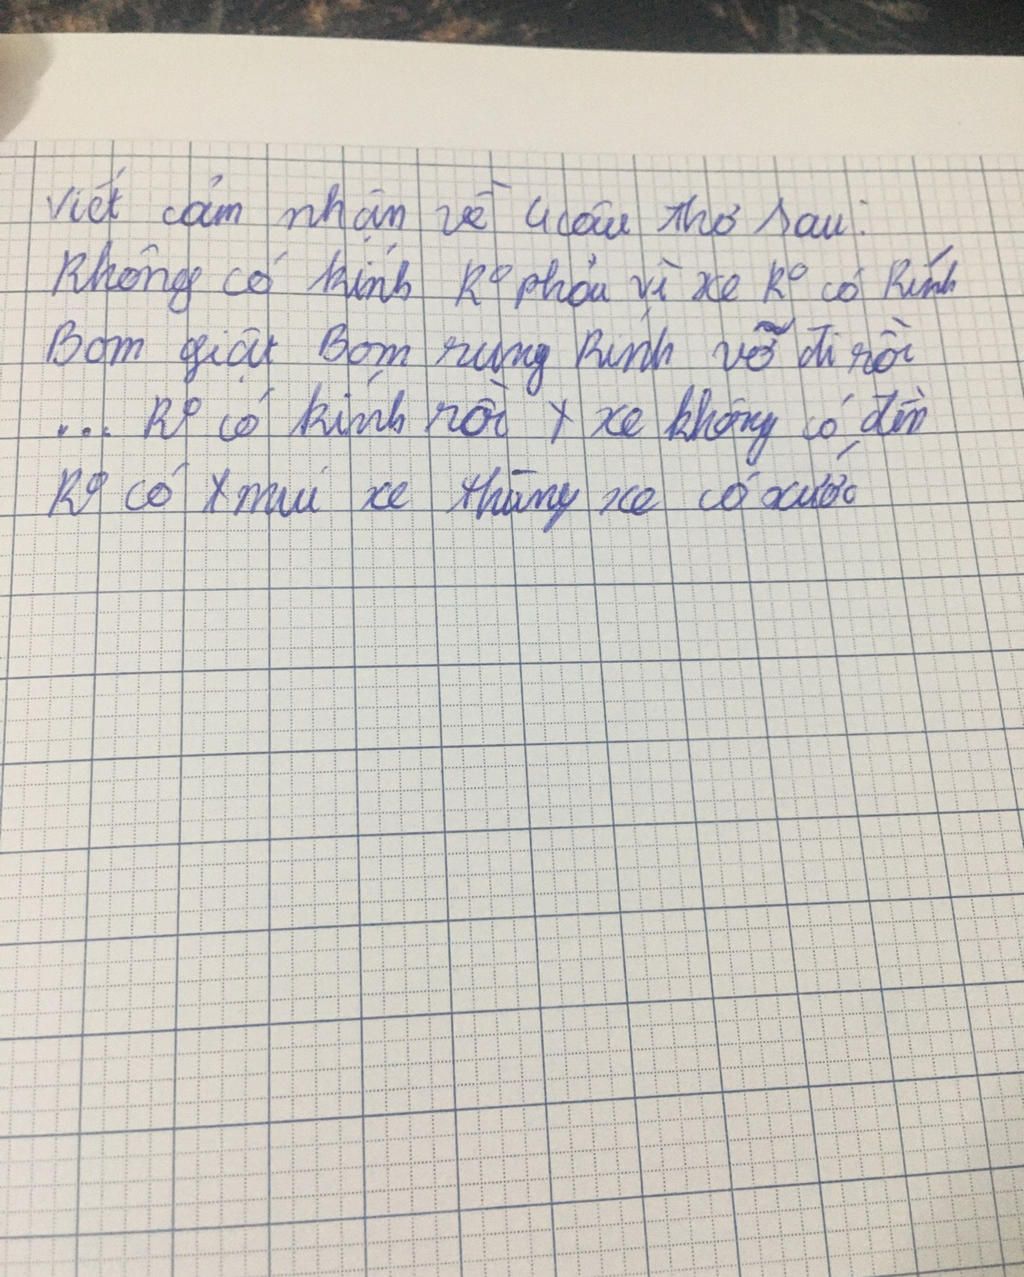 Viết cảm nhận về 4 câu thơ sau:
Không có kính ko phải vì xe ko có kính
Bom giật Bom rung kính vỡ đi rồi
... ko có kính rồi x xe không có đèn
ko có x mui xe thùng xe có xước